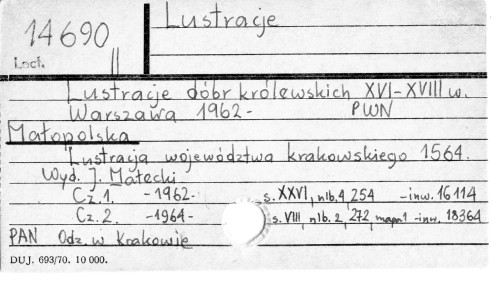 Lustracje
14690
II
Incl.
Lustracje dóbr królewskich XVI-XVIII w.
Warszawa 1962- PWN
Małopolska
Lustracja województwa krakowskiego 1564.
Wyd. J. Małecki
Cz. 1. -1962- s. XXVI, nlb. 4, 254 -inw. 16114
Cz. 2. -1964- s. VIII, nlb. 2, 272, map 1 -inw. 18364
PAN Odz. w Krakowie
DUJ. 693/70. 10 000.